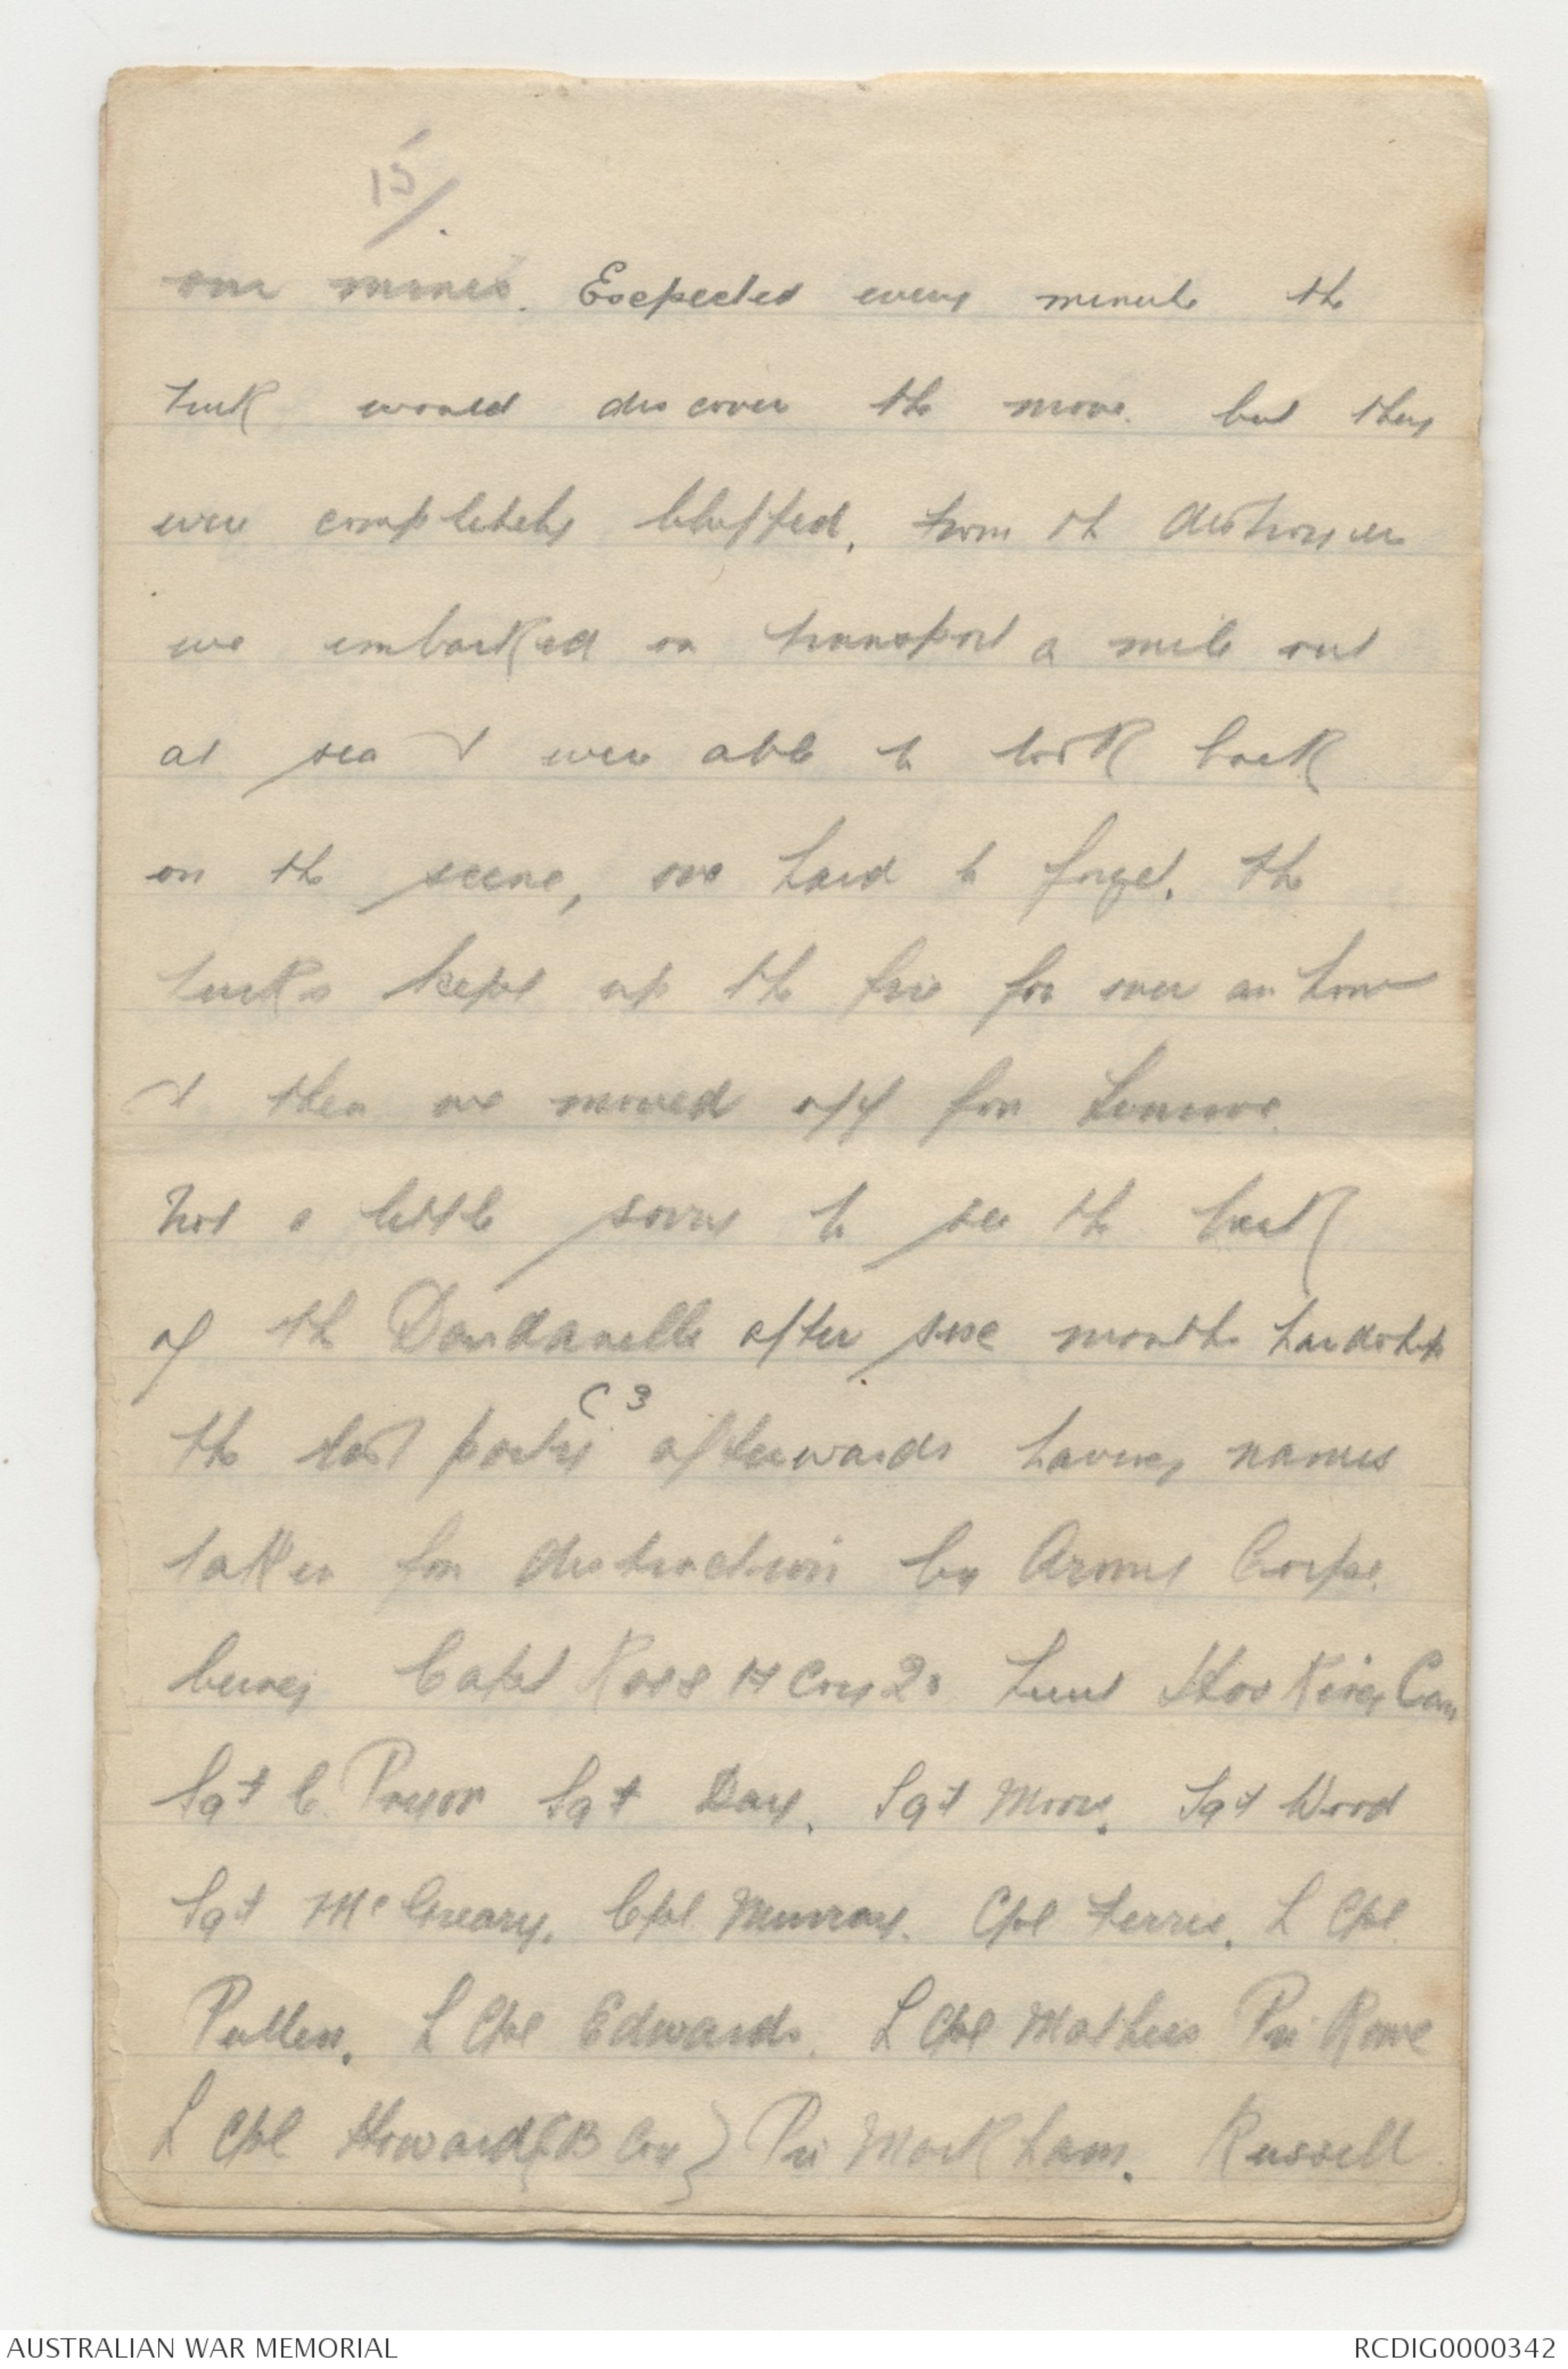 15/.
our mines. Expected every minute the
Turk would discover the move. but they
were completely bluffed, from the destroyer
we embarked on transport a mile out
at sea & were able to look back
on the scene, one hard to forget. the
turks kept up the fire for over an hour
& then we moved off for Lemnos.
Not a little sorry to see the back
of the Dardanelle after six months hardship
C 3
the last party afterwards having names
taken for distinction by Army Corps.
being Capt Ross H Coy 28 Lieut Hosking Can
Sgt C. Pryor Sgt Day. Sgt Moore. Sgt Wood
Sgt McGreary. Cpl Murray. Cpl Ferris. L Cpl.
Pullen. L Cpl Edwards. L Cpl Mathers Pri Rowe
L Cpl Howard {B Coy} Pri Markham. Russell
AUSTRALIAN WAR MEMORIAL
RCDIG0000342